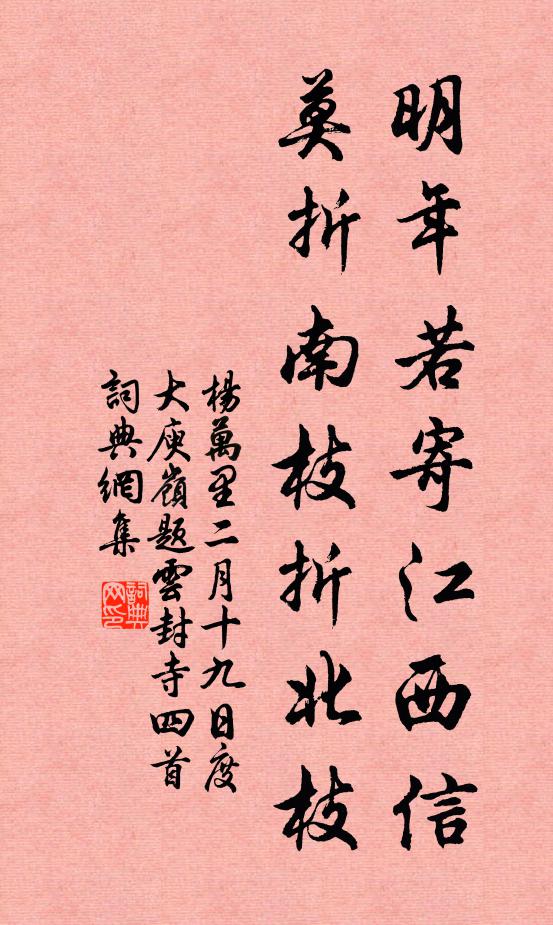 明年若寄江西信
莫折南枝折北枝
楊萬里二月十九日度
大庾嶺題雲封寺四首
詞典網集
詞典网印